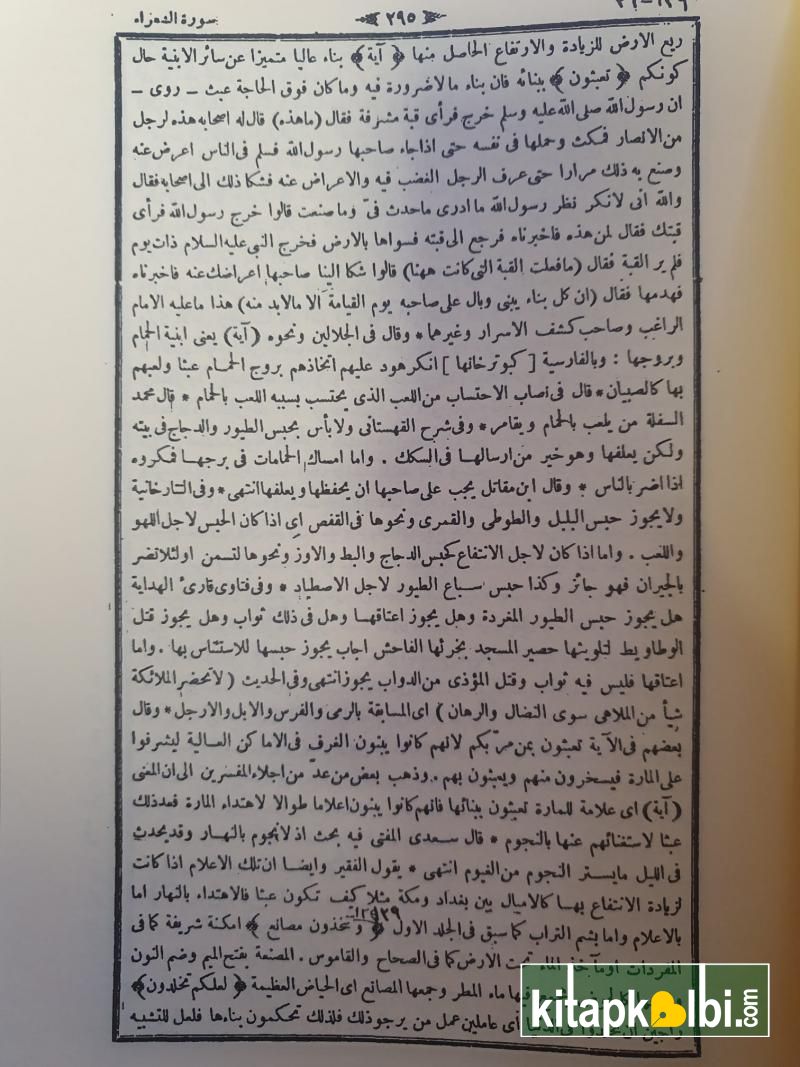 سورة الشعراء
﴿ ٢٩٥ ﴾
ريع الارض للزيادة والارتفاع الحاصل منها ﴿ آية ﴾ بناء عاليا متميزا عن سائر الابنية حال
كونكم ﴿ تعبثون ﴾ ببنائه فان بناء مالا ضرورة فيه وما كان فوق الحاجة عبث ـ روى ـ
ان رسول الله صلى الله عليه وسلم خرج فرأى قبة مشرفة فقال (ماهذه) قال له اصحابه هذه لرجل
من الانصار فمكث وحملها فى نفسه حتى اذا جاء صاحبها رسول الله فسلم فى الناس اعرض عنه
وصنع به ذلك مرارا حتى عرف الرجل الغضب فيه والاعراض عنه فشكا ذلك الى اصحابه فقال
والله انى لانكر نظر رسول الله ما ادرى ماحدث فىّ وما صنعت قالوا خرج رسول الله فرأى
قبتك فقال لمن هذه فاخبرناه فرجع الى قبته فسواها بالارض فخرج النبى عليه السلام ذات يوم
فلم ير القبة فقال (مافعلت القبة التى كانت ههنا) قالوا شكا الينا صاحبها اعراضك عنه فاخبرناه
فهدمها فقال (ان كل بناء يبنى وبال على صاحبه يوم القيامة الا مالابد منه) هذا ماعليه الامام
الراغب وصاحب كشف الاسرار وغيرهما * وقال فى الجلالين ونحوه (آية) يعنى ابنية الحمام
وبروجها : وبالفارسية [ كبوتر خانها ] انكر هود عليهم اتخاذهم بروج الحمام عبثا ولعبهم
بها كالصبيان * قال فى نصاب الاحتساب من اللعب الذى يحتسب بسببه اللعب بالحمام * قال محمد
السفلة من يلعب بالحمام ويقامر * وفى شرح القهستانى ولا بأس بحبس الطيور والدجاج فى بيته
ولكن يعلفها وهو خير من ارسالها فى السكك . واما امساك الحمامات فى برجها فمكروه
اذا اضر بالناس * وقال ابن مقاتل يجب على صاحبها ان يحفظها ويعلفها انتهى * وفى التتارخانية
ولا يجوز حبس البلبل والطوطى والقمرى ونحوها فى القفص اى اذا كان الحبس لاجل اللهو
واللعب . واما اذا كان لاجل الانتفاع كحبس الدجاج والبط والاوز ونحوها لتسمن او لئلا تضر
بالجيران فهو جائز وكذا حبس سباع الطيور لاجل الاصطياد * وفى فتاوى قارئ الهداية
هل يجوز حبس الطيور المغردة وهل يجوز اعتاقها وهل فى ذلك ثواب وهل يجوز قتل
الوطاويط لتلويثها حصير المسجد بخرئها الفاحش اجاب يجوز حبسها للاستئناس بها . واما
اعتاقها فليس فيه ثواب وقتل المؤذى من الدواب يجوز انتهى وفى الحديث (لا تحضر الملائكة
شيأ من الملاهى سوى النضال والرهان) اى المسابقة بالرمى والفرس والابل والارجل * وقال
بعضهم فى الآية تعبثون بمن مرّ بكم لانهم كانوا يبنون الغرف فى الاماكن العالية ليشرفوا
على المارة فيسخرون منهم ويعبثون بهم . وذهب بعض من عدّ من اجلاء المفسرين الى ان المعنى
(آية) اى علامة للمارة تعبثون ببنائها فانهم كانوا يبنون اعلاما طوالا لاهتداء المارة فعد ذلك
عبثا لاستغنائهم عنها بالنجوم * قال سعدى المفتى فيه بحث اذ لا نجوم بالنهار وقد يحدث
فى الليل مايستر النجوم من الغيوم انتهى * يقول الفقير وايضا ان تلك الاعلام اذا كانت
لزيادة الانتفاع بها كالاميال بين بغداد ومكة مثلا كيف تكون عبثا فالاهتداء بالنهار اما
بالاعلام واما بشم التراب كما سبق فى الجلد الاول ﴿ وتتخذون مصانع ﴾ امكنة شريفة كما فى
المفردات او مآخذ الماء تحت الارض كما فى الصحاح والقاموس . المصنعة بفتح الميم وضم النون
فيها ماء المطر وجمعها المصانع اى الحياض العظيمة ﴿ لعلكم تخلدون ﴾
اى عاملين عمل من يرجو ذلك فلذلك تحكمون بناءها فلعل للتشبيه
kitapkalbi.com